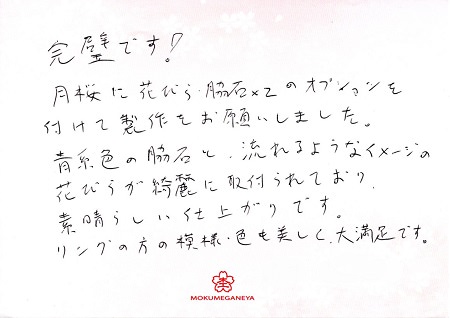 完璧です!
月桜に花びら・脇石×2のオプションを
付けて製作をお願いしました。
青系色の脇石と、流れるようなイメージの
花びらが綺麗に取付られており、
素晴らしい仕上がりです。
リングの方の模様・色も美しく、大満足です。
MOKUMEGANEYA